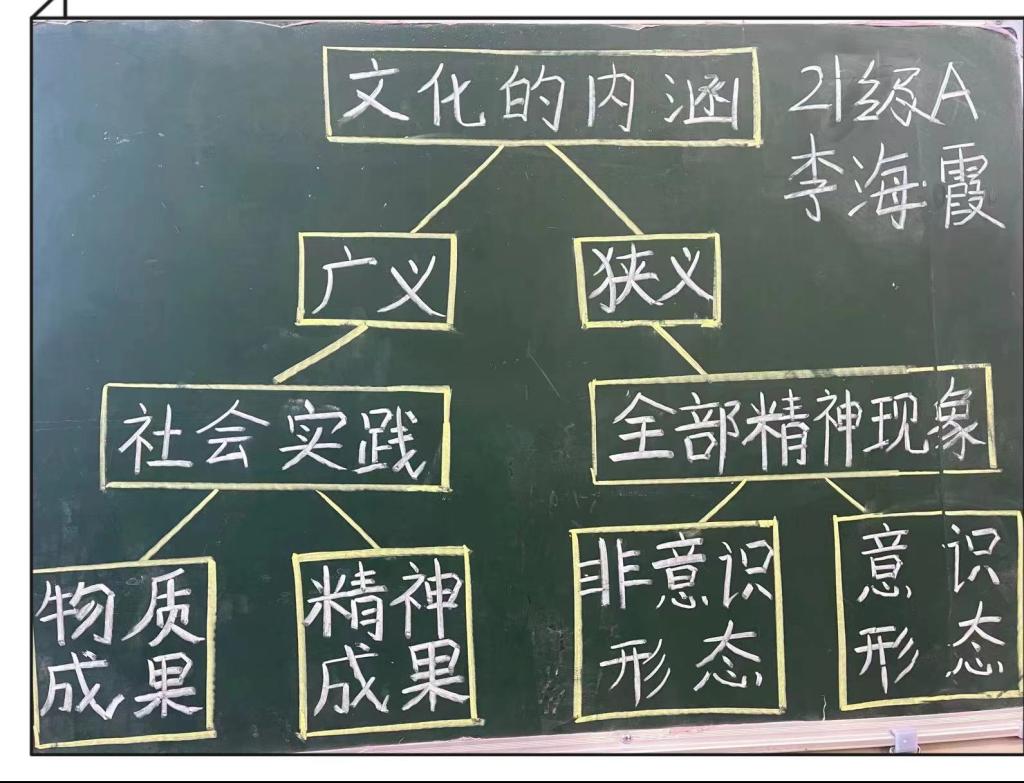 文化的内涵
21级A
李海霞
广义
狭义
社会实践
全部精神现象
物质
成果
精神
成果
非意识
形态
意识
形态